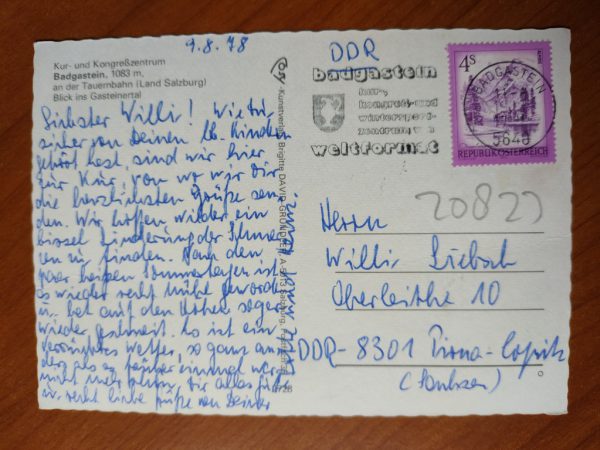 9.8.78
Kur- und Kongreßzentrum
Badgastein, 1083 m,
an der Tauernbahn (Land Salzburg)
Blick ins Gasteinertal
Liebster Willi! Wie Du
sicher von Deinen lb. Kindern
gehört hast, sind wir hier
zur Kur, von wo wir Dir
die herzlichsten Grüße sen-
den. Wir hoffen wieder ein
bissel Linderung der Schmer-
zen zu finden. Nach den
paar heißen Sommertagen ist
es wieder recht kühl geworden
hat auf den Höhen sogar
wieder geschneit. Es ist ein
verrücktes Wetter, so ganz an-
ders als es früher einmal war
Dir alles Gute
u. recht liebe Grüße von Deiner
Kunstverlag Brigitte DAVID-GRÜNDLER, A-
Salzburg
DDR
badgastein
kur-,
kongreß- und
wintersport-
zentrum v.
weltformat
4 S
BADGASTEIN
5640
REPUBLIK ÖSTERREICH
20823
Herrn
Willi Liebsch
Oberleithe 10
DDR - 8301 Pirna-Copitz
(Sachsen)